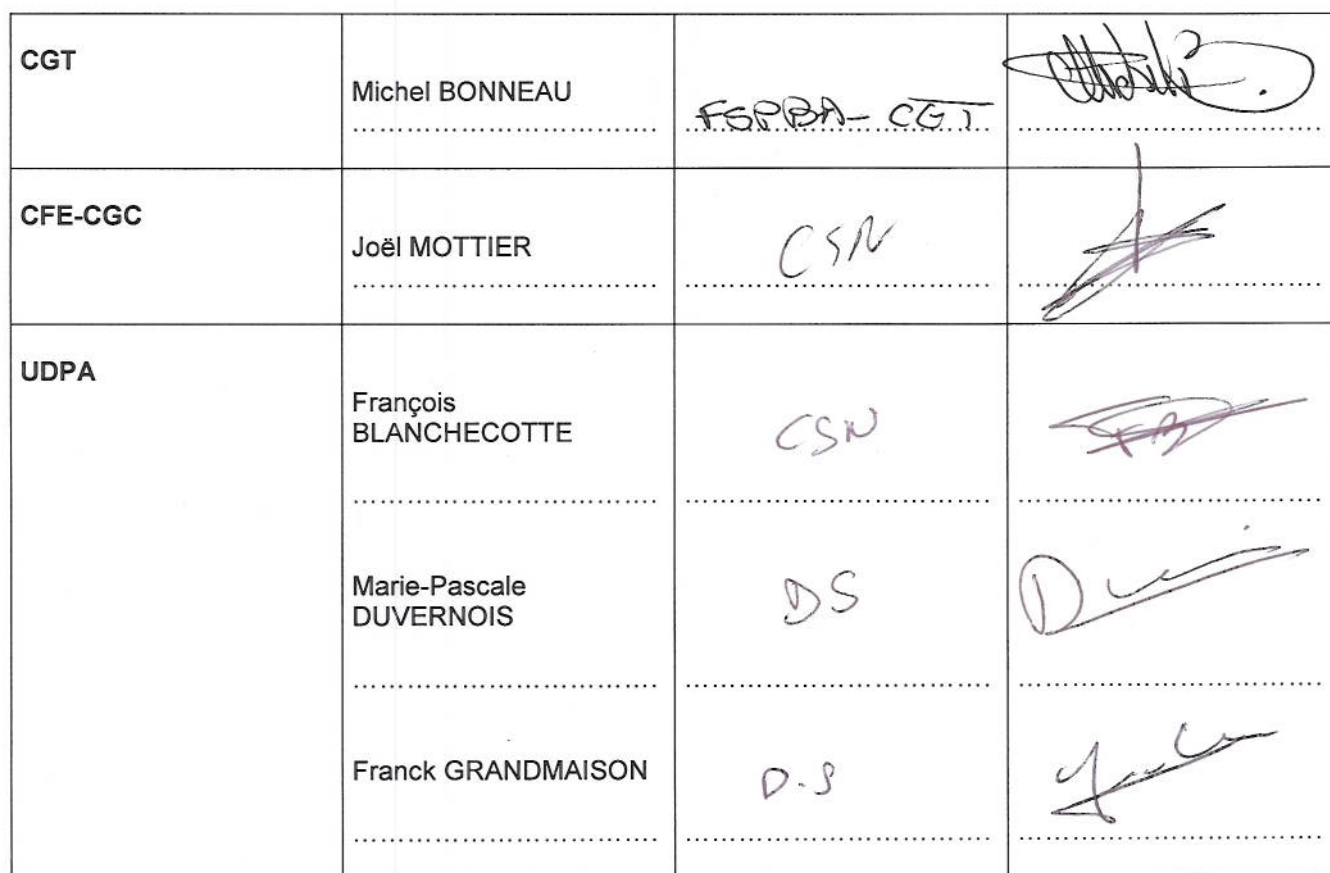 CGT
Michel BONNEAU
FSPBA-CGT
CFE-CGC
Joël MOTTIER
CSN
UDPA
François
BLANCHECOTTE
CSN
Marie-Pascale
DUVERNOIS
DS
Franck GRANDMAISON
D.S